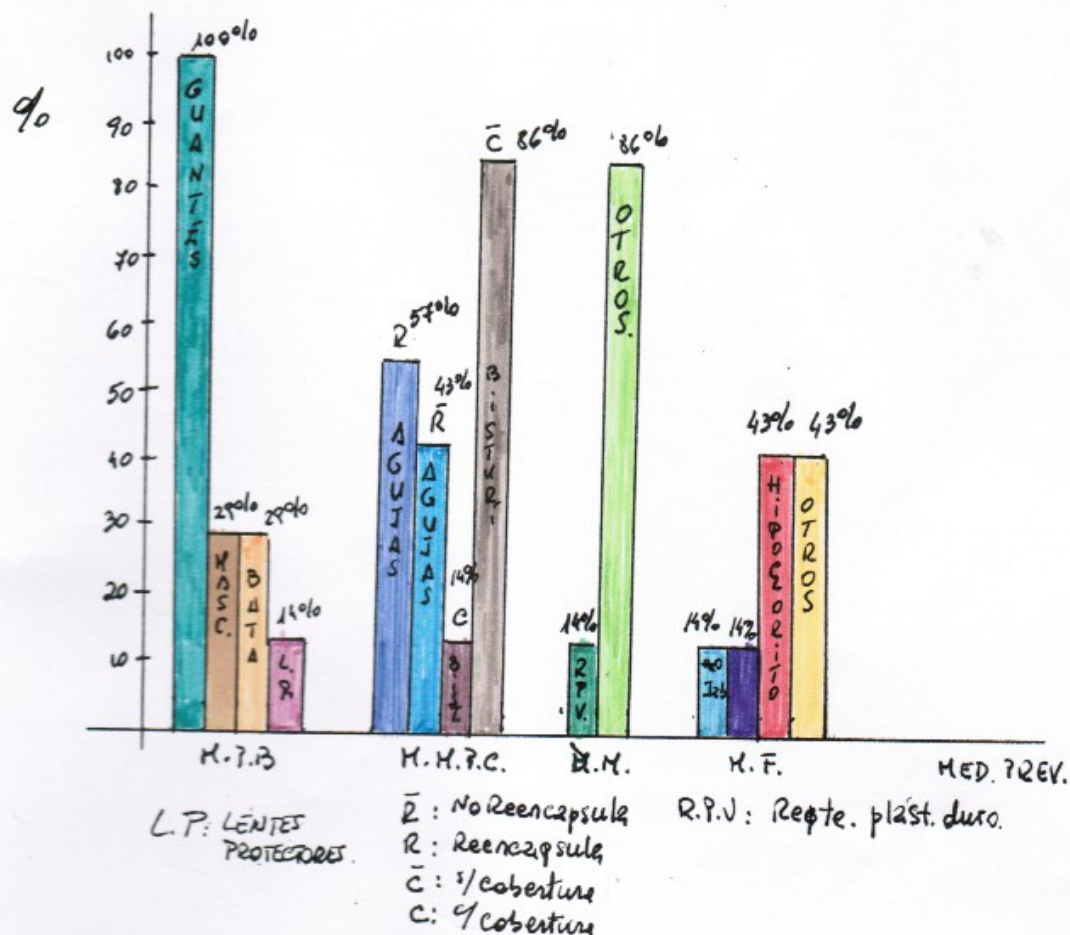 %
100
90
80
70
60
50
40
30
20
10
100%
GUANTES
29%
MASC.
29%
BATA
14%
L.P.
R 57%
AGUJAS
43%
R̄
AGUJAS
14%
C
C̄ 86%
BISTURI
14%
R.P.V.
86%
OTROS.
14%
14%
43%
HIPOCLORITO
43%
OTROS
M.P.B
M.M.P.C.
M.
M.F.
MED. PREV.
L.P: LENTES
PROTECTORES.
R̄ : No Reencapsula
R : Reencapsula
C̄ : s/cobertura
C: c/cobertura
R.P.V: Repte. plást. duro.